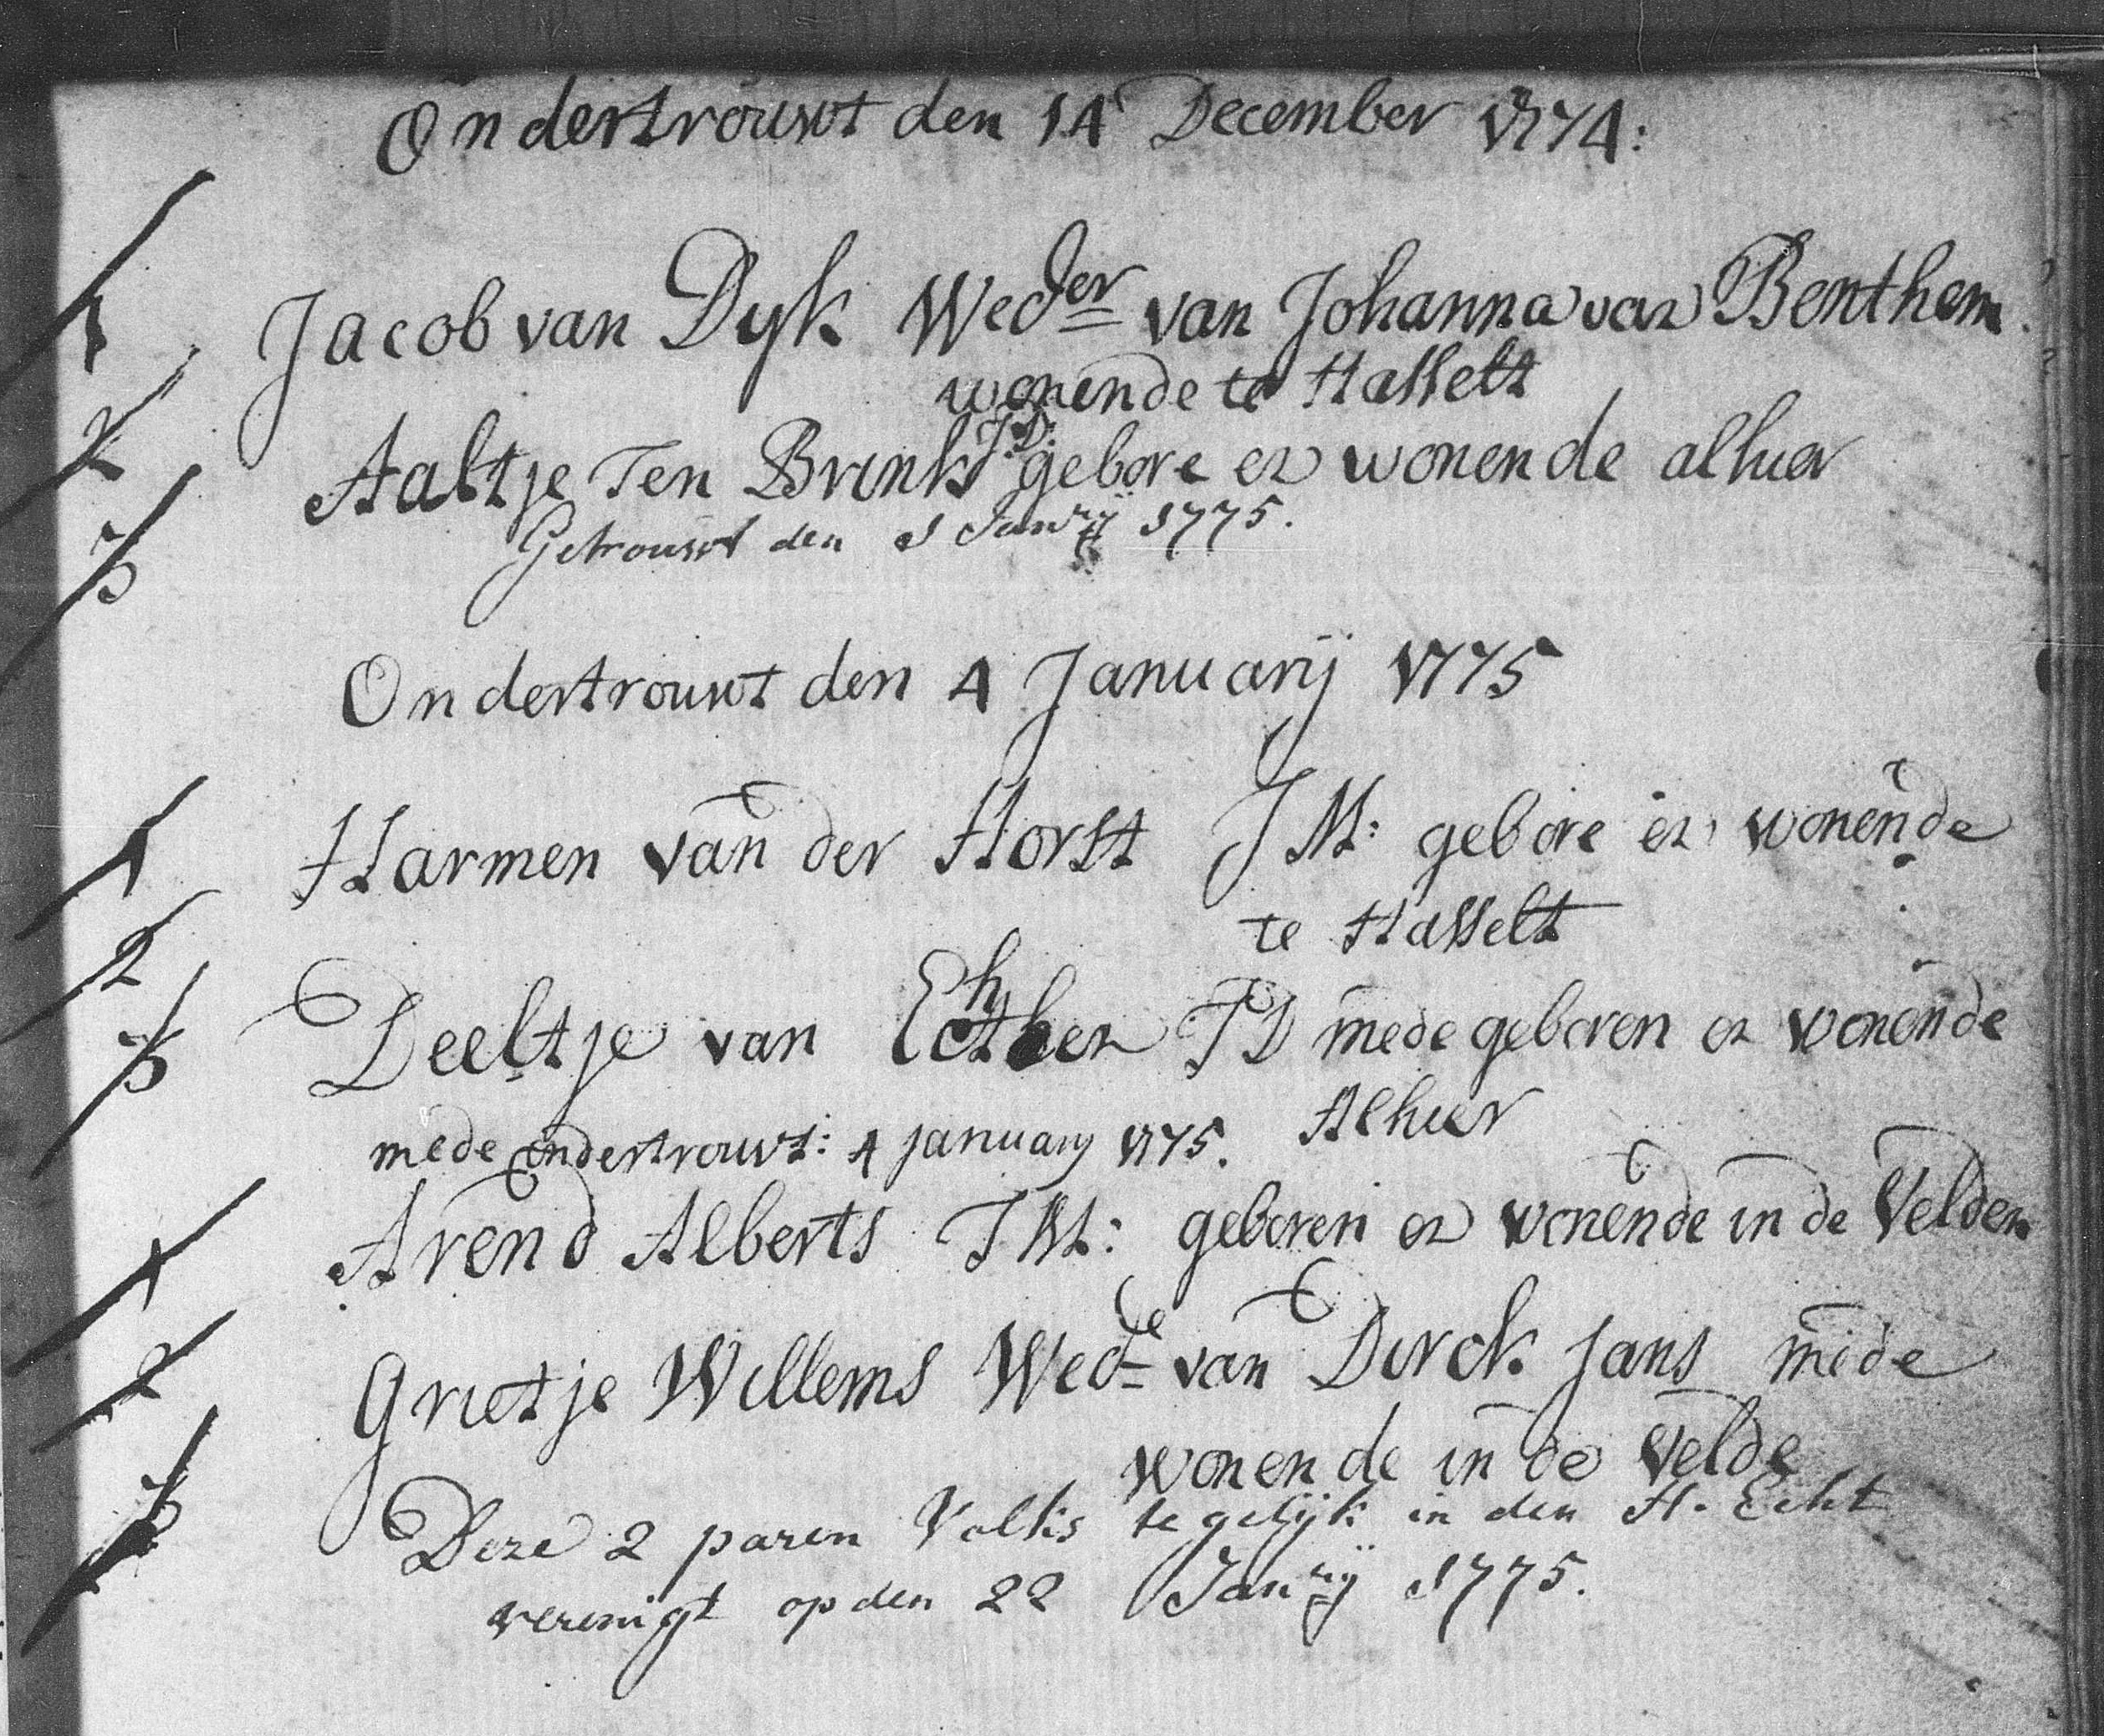 Ondertrouwt den 14 December 1774:
1 Jacob van Dyk Weder van Johanna van Benthem.
wonende te Hasselt
2 Aaltje Ten Brink JD: gebore en wonende alhier
3 Getrouwt den 1 Janrij 1775.
Ondertrouwt den 4 Januarij 1775
1 Harmen van der Horst JM: gebore en wonende
te Hasselt
2 Deeltje van JD mede geboren en wonende
3 Alhier
mede ondertrouwt: 4 january 1775.
1 Arend Alberts JM: geboren en wonende in de Velden
2 Grietje Willems Wede van Dirck Jans mede
wonende in de Velde
3 Deze 2 paren Volks tegelijk in den H. Echt
verenigt op den 22 Janrij 1775.